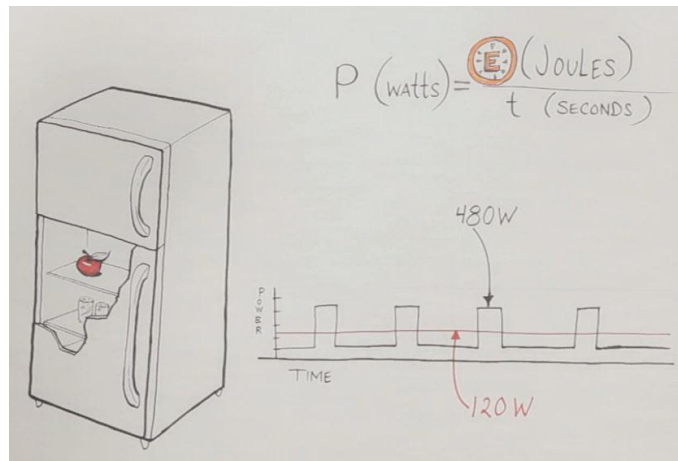 P (WATTS) = E (JOULES)
t (SECONDS)
480W
POWER
TIME
120W